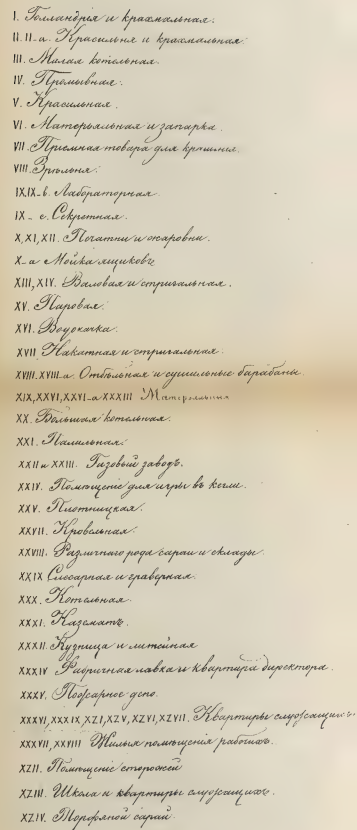 I. Голландрея и крахмальная.
II. II-а. Красильня и крахмальная.
III. Малая котельная.
IV. Промывная.
V. Красильная.
VI. Матерьяльная и запарка.
VII. Приемная товара для крашенья.
VIII. Зрельня.
IX. IX-в. Лабораторная
IX-с. Секретная.
X, XI, XII. Печатни и жаровни.
X-а Мойка ящиковъ
XIII, XIV. Валовая и стригальная.
XV. Паровая.
XVI. Водокачка.
XVII Накатная и стригальная.
XVIII. XVIII-а. Отбѣльная и сушильные барабаны.
XIX, XXVI, XXVI-а XXXIII Матерьяльная
XX. Большая котельная.
XXI. Палильная.
XXII и XXIII. Газовый заводъ.
XXIV. Помѣщеніе для игры въ кегли.
XXV. Плотницкая.
XXVII. Кровельная.
XXVIII. Различнаго рода сараи и склады.
XXIX Слесарная и граверная.
XXX. Котельная.
XXXI. Казематъ.
XXXII. Кузница и литейная
XXXIV Фабричная лавка и квартира директора.
XXXV. Пожарное депо.
XXXVI, XXXIX, XZI, XZV, XZVI, XZVII. Квартиры служащихъ.
XXXVII, XXVIII Жилыя помѣщенія рабочихъ.
XZII. Помѣщеніе сторожей
XZIII. Школа и квартиры служащихъ.
XZIV. Торфяной сарай.